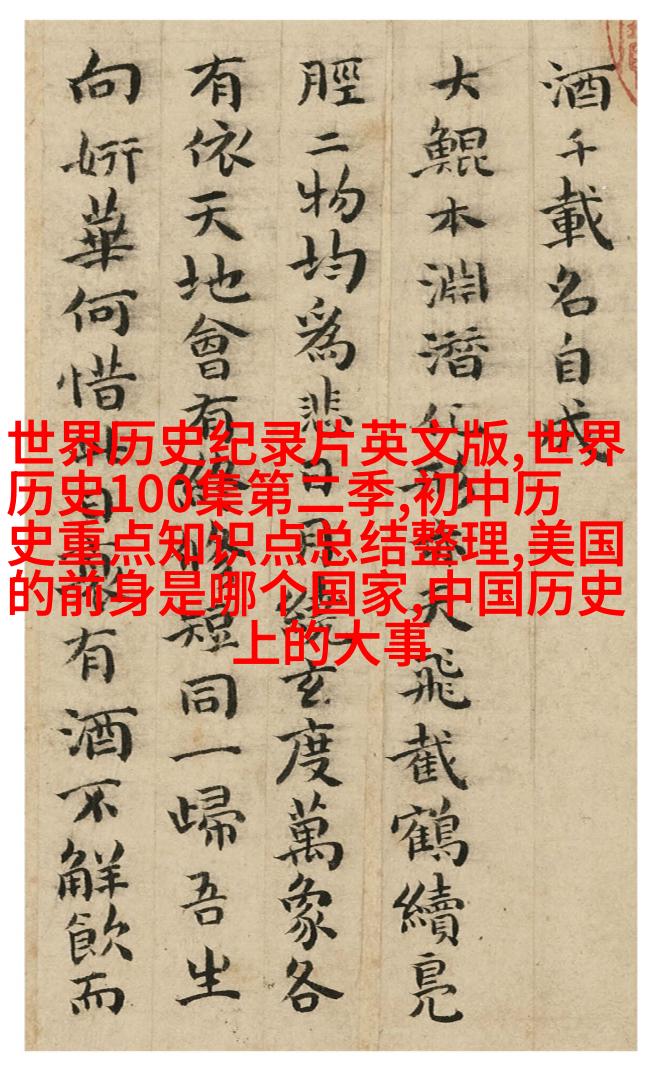 酒千載名自
大鯤本淵潛化形天飛截鶴續鳧
脛二物均爲悲日月玄度萬象各
有依天地會有脩短同一歸吾生
向妍華何惜有酒不解飲而
世界历史纪录片英文版,世界
历史100集第二季,初中历
史重点知识点总结整理,美国
的前身是哪个国家,中国历史
上的大事